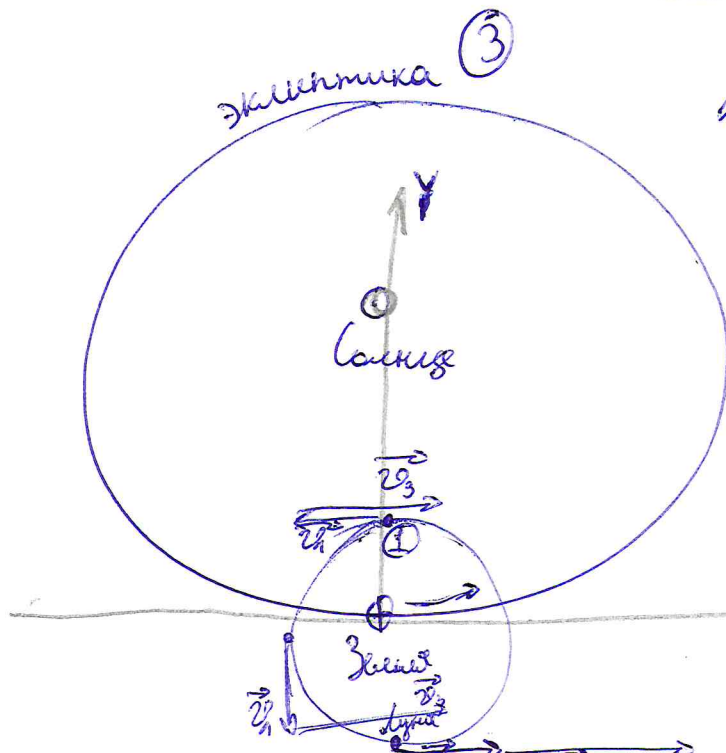 ③
эклиптика
γ
Солнце
v₃
vл
①
Земля
vл
v₃
Луна